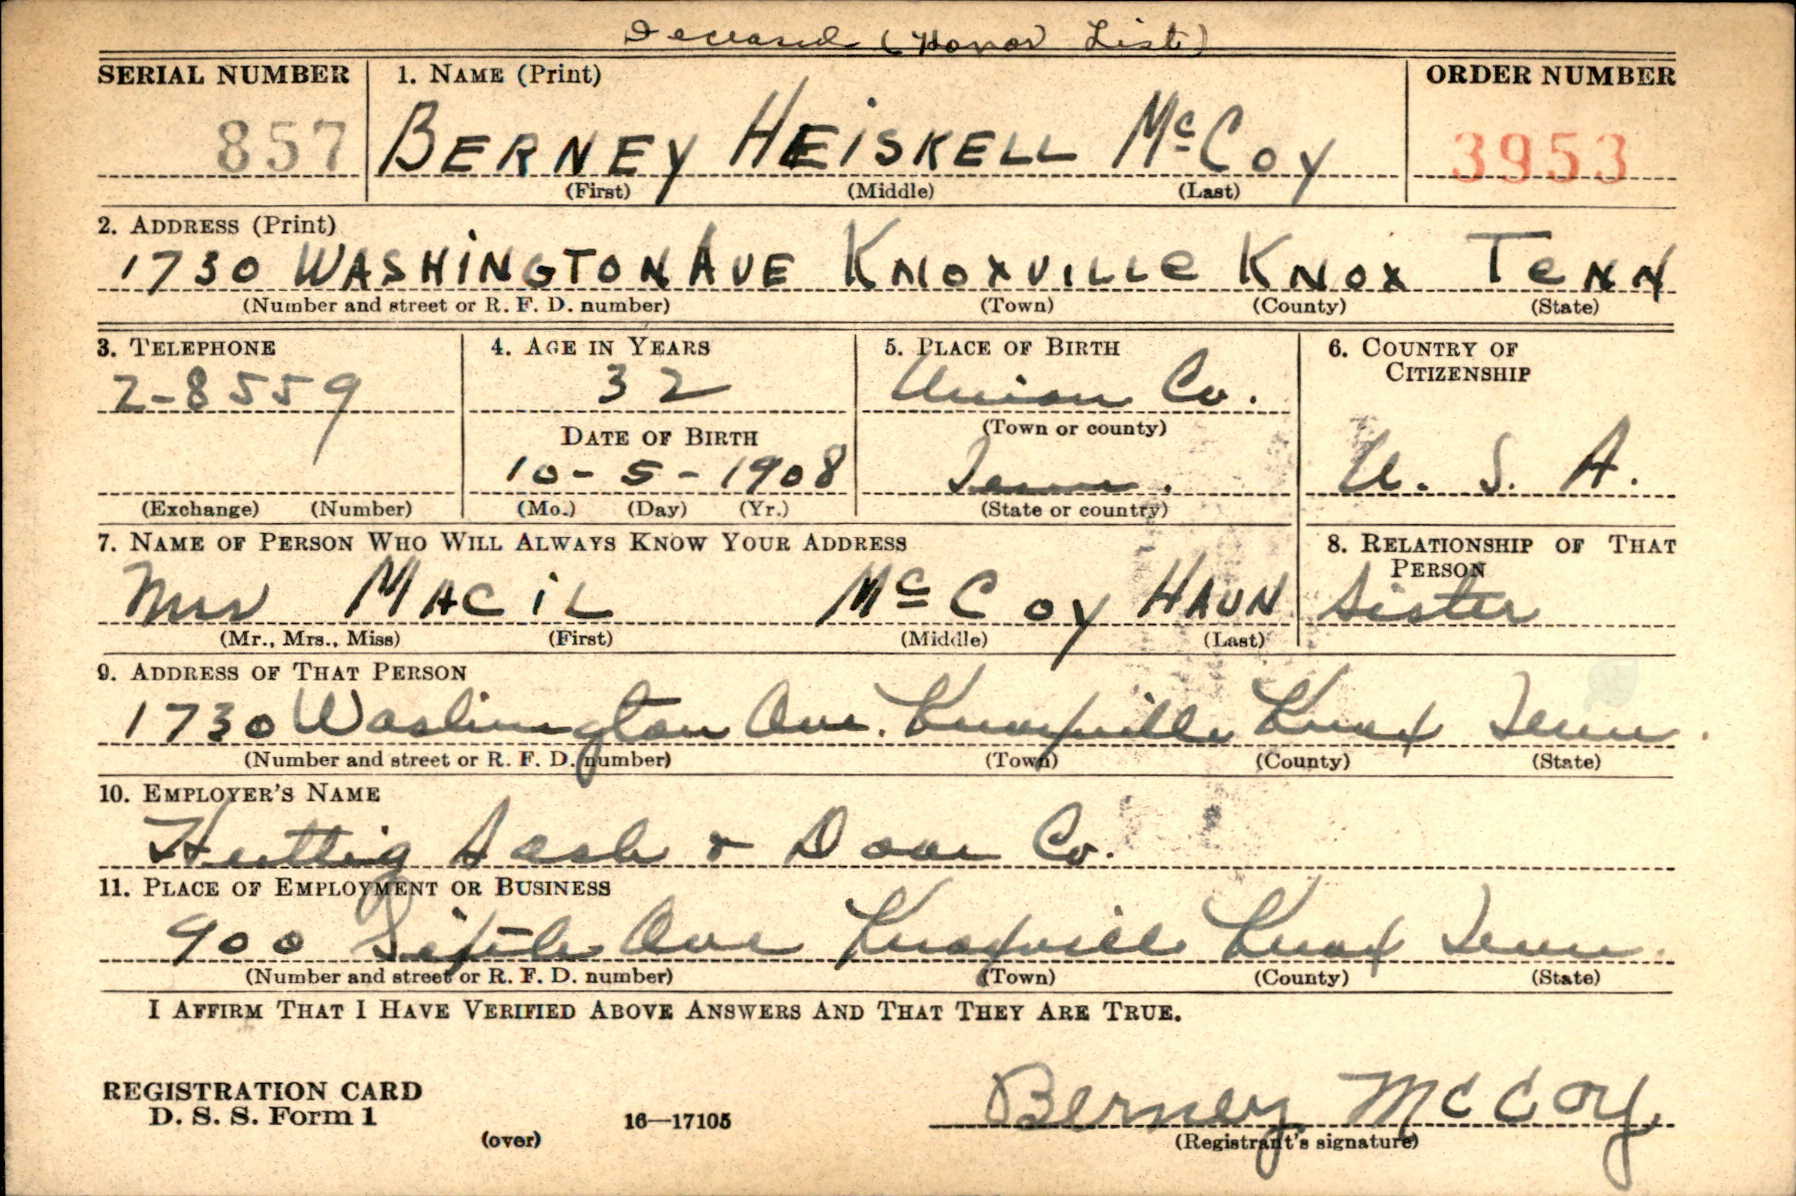 Deceased (Honor List)
SERIAL NUMBER 1. NAME (Print) ORDER NUMBER
857 BERNEY HEISKELL McCOY 3953
(First) (Middle) (Last)
2. ADDRESS (Print)
1730 WASHINGTON AVE KNOXVILLE KNOX TENN
(Number and street or R. F. D. number) (Town) (County) (State)
3. TELEPHONE 4. AGE IN YEARS 5. PLACE OF BIRTH 6. COUNTRY OF CITIZENSHIP
2-8559 32 Union Co.
DATE OF BIRTH (Town or county)
10-5-1908 Tenn. U. S. A.
(Exchange) (Number) (Mo.) (Day) (Yr.) (State or country)
7. NAME OF PERSON WHO WILL ALWAYS KNOW YOUR ADDRESS 8. RELATIONSHIP OF THAT PERSON
Mrs MACIL McCOY HAUN Sister
(Mr., Mrs., Miss) (First) (Middle) (Last)
9. ADDRESS OF THAT PERSON
1730 Washington Ave. Knoxville Knox Tenn.
(Number and street or R. F. D. number) (Town) (County) (State)
10. EMPLOYER'S NAME
Huttig Sash & Door Co.
11. PLACE OF EMPLOYMENT OR BUSINESS
900 Ave Knoxville Knox Tenn.
(Number and street or R. F. D. number) (Town) (County) (State)
I AFFIRM THAT I HAVE VERIFIED ABOVE ANSWERS AND THAT THEY ARE TRUE.
REGISTRATION CARD
D. S. S. Form 1 16—17105 Berney McCoy
(over) (Registrant's signature)